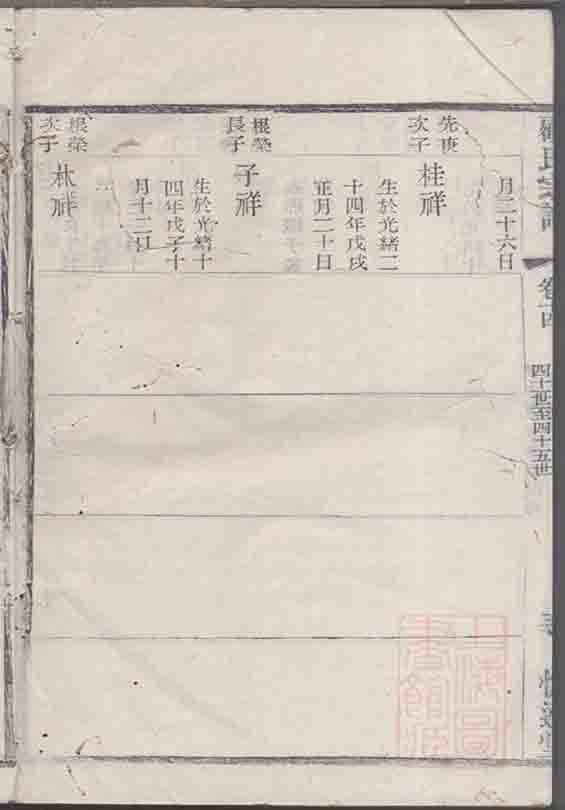 月二十六日
先庚
次子
桂祥
生於光緒二
十四年戊戌
正月二十日
根榮
長子
子祥
生於光緒十
四年戊子十
月十二日
根榮
次子
林祥
卷十四
四十一世至四十五世
上海圖
書館藏